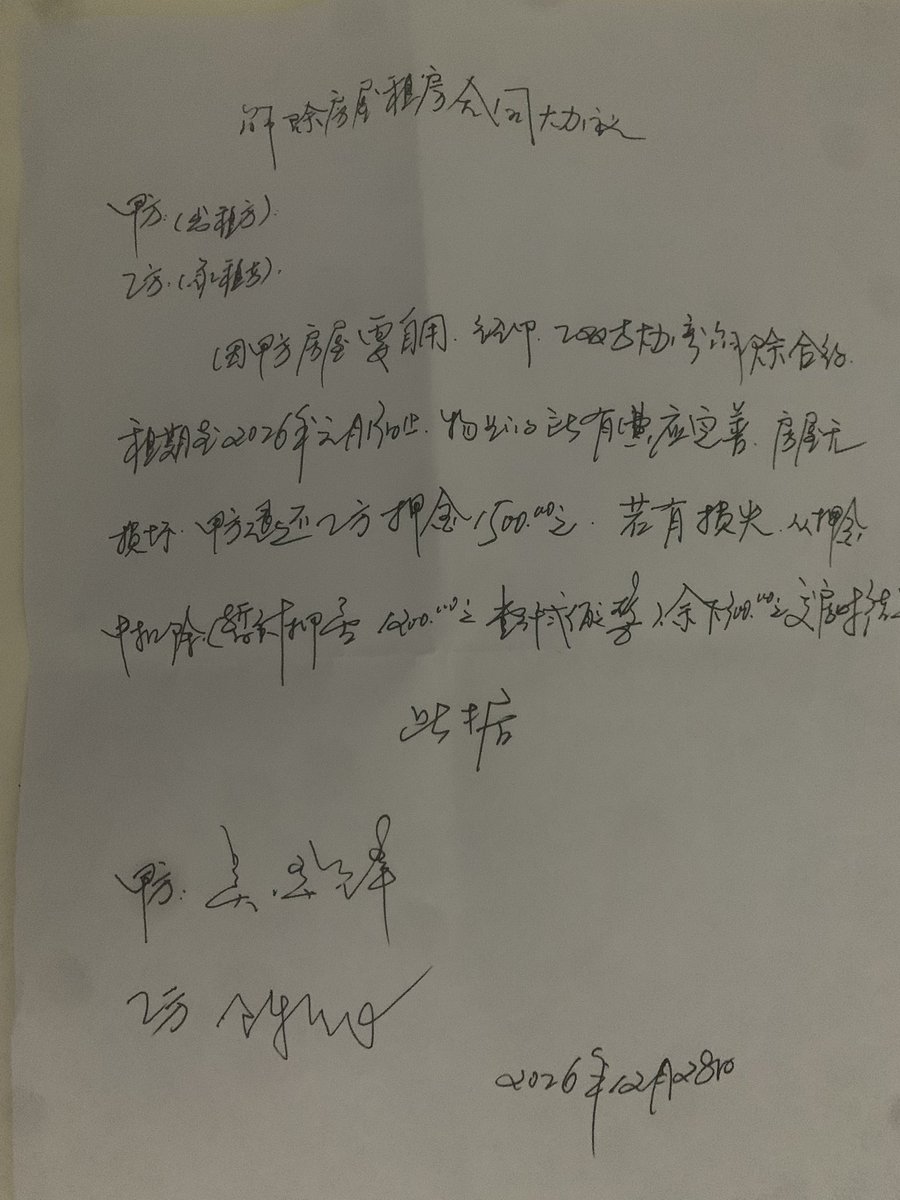 解除房屋租房合同协议
甲方:(出租方).
乙方.(承租方).
因甲方房屋要自用.经甲.乙双方协商解除合约.
租期至2026年元月 止.物业 所有费应完善.房屋无
损坏.甲方退还乙方押金1500.00元.若有损失.从押金
中扣除.(暂付押金1200.00元 ).余下300.00元交房时结
此据
甲方:
乙方
2026年12月28日